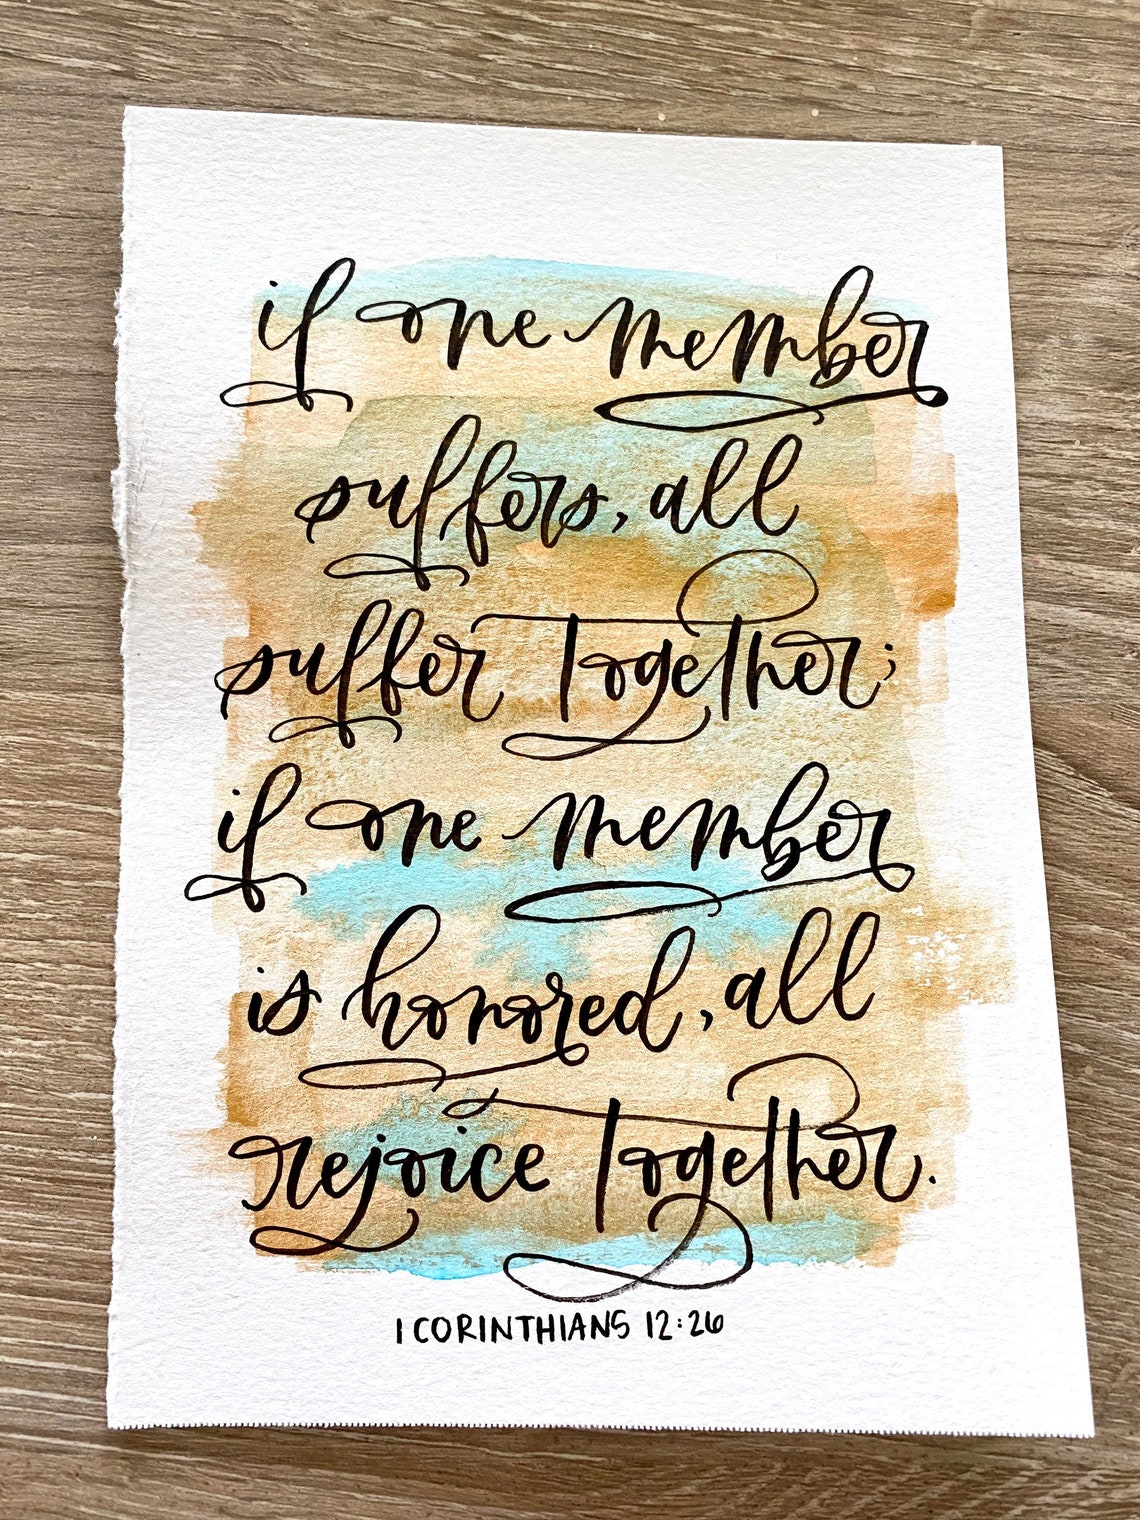 if one member
suffers, all
suffer together;
if one member
is honored, all
rejoice together.
1 CORINTHIANS 12:26